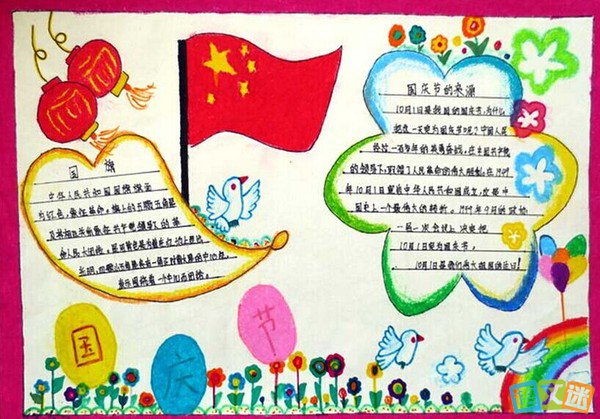 国旗
中华人民共和国国旗旗面
为红色，象征革命。旗上的五颗五角星
及其相互关系象征共产党领导下的革
命人民大团结。
国庆节的来源
10月1日是我国的国庆节，为什么
把这一天定为国庆节呢？中国人民
经过一百多年的英勇奋战，在中国共产党
的领导下，取得了人民革命的伟大胜利。在1949
年10月1日宣告中华人民共和国成立，这是中
国历史上一个最伟大的转折。1949年9月的政协
一届一次会议上决定把
10月1日定为国庆节。
10月1日是我们伟大祖国的生日！
国
庆
节
语文迷